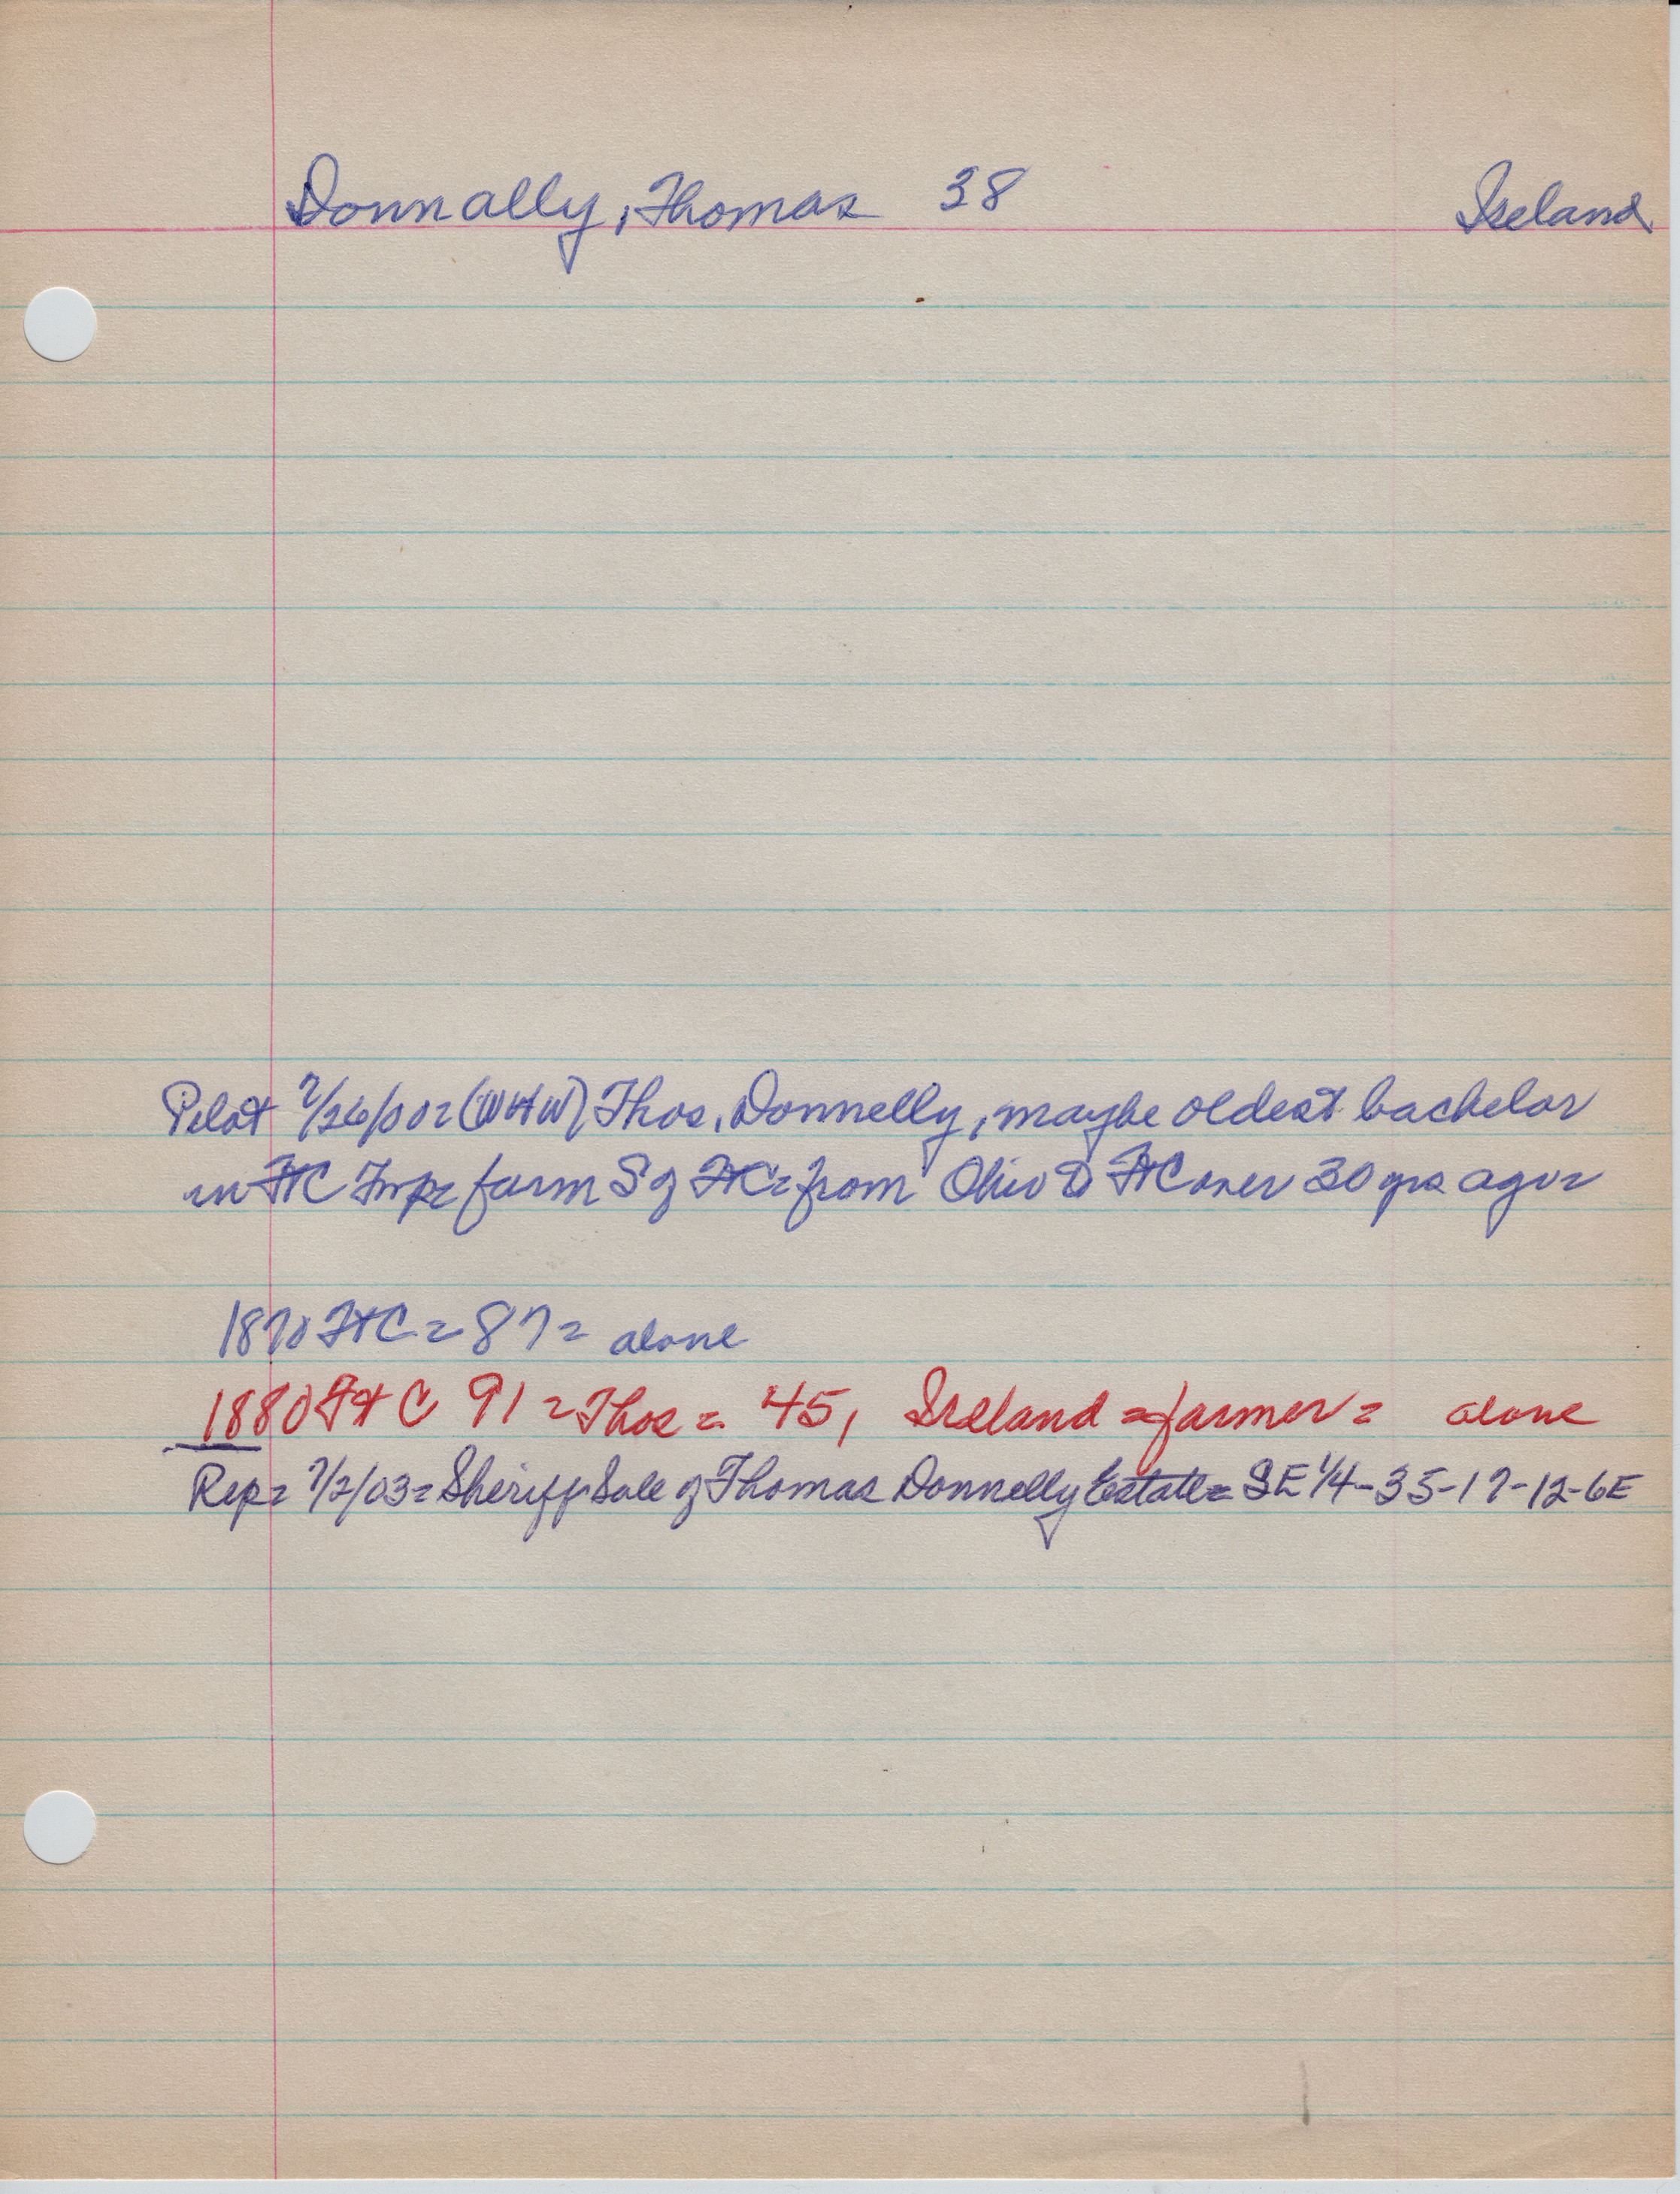 Donnally, Thomas 38 Ireland
Pilot 7/26/00= (WHW) Thos. Donnelly, maybe oldest bachelor
in FtC Twp= farm S of FtC= from Ohio to FtC over 30 yrs ago=
1870 FtC = 87 = alone
1880 FtC 91 = Thos = 45, Ireland = farmer = alone
Rep= 7/2/03= Sheriff Sale of Thomas Donnelly Estate= SE 1/4-35-17-12-6E